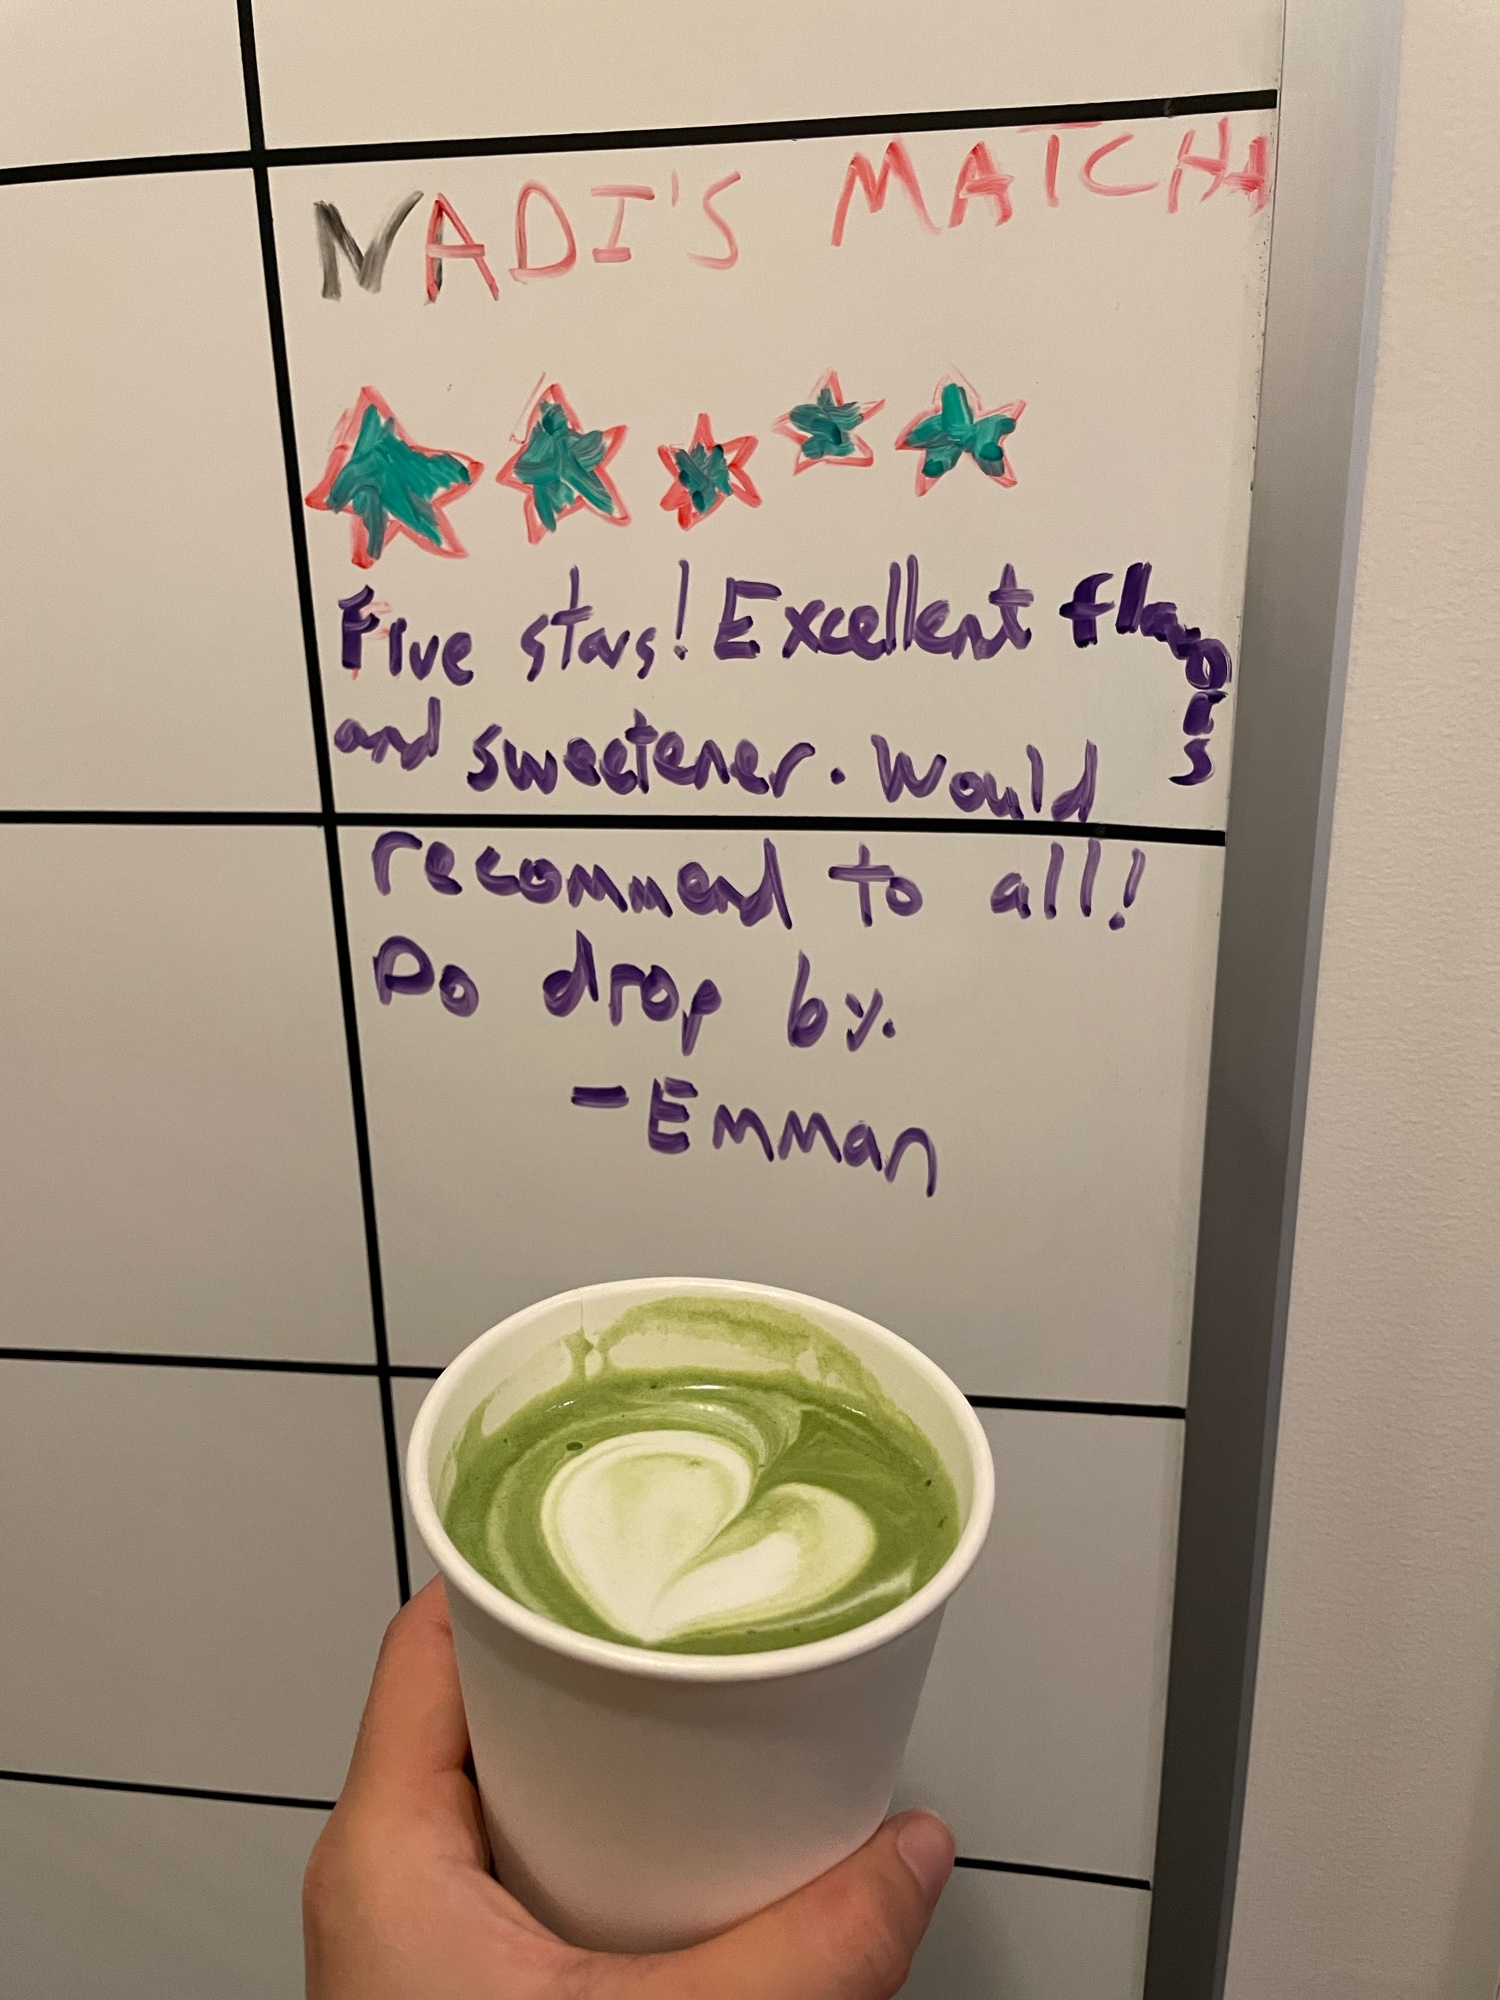 NADI'S MATCHA
Five stars! Excellent flavors
and sweetener. Would
recommend to all!
Do drop by.
-Emman